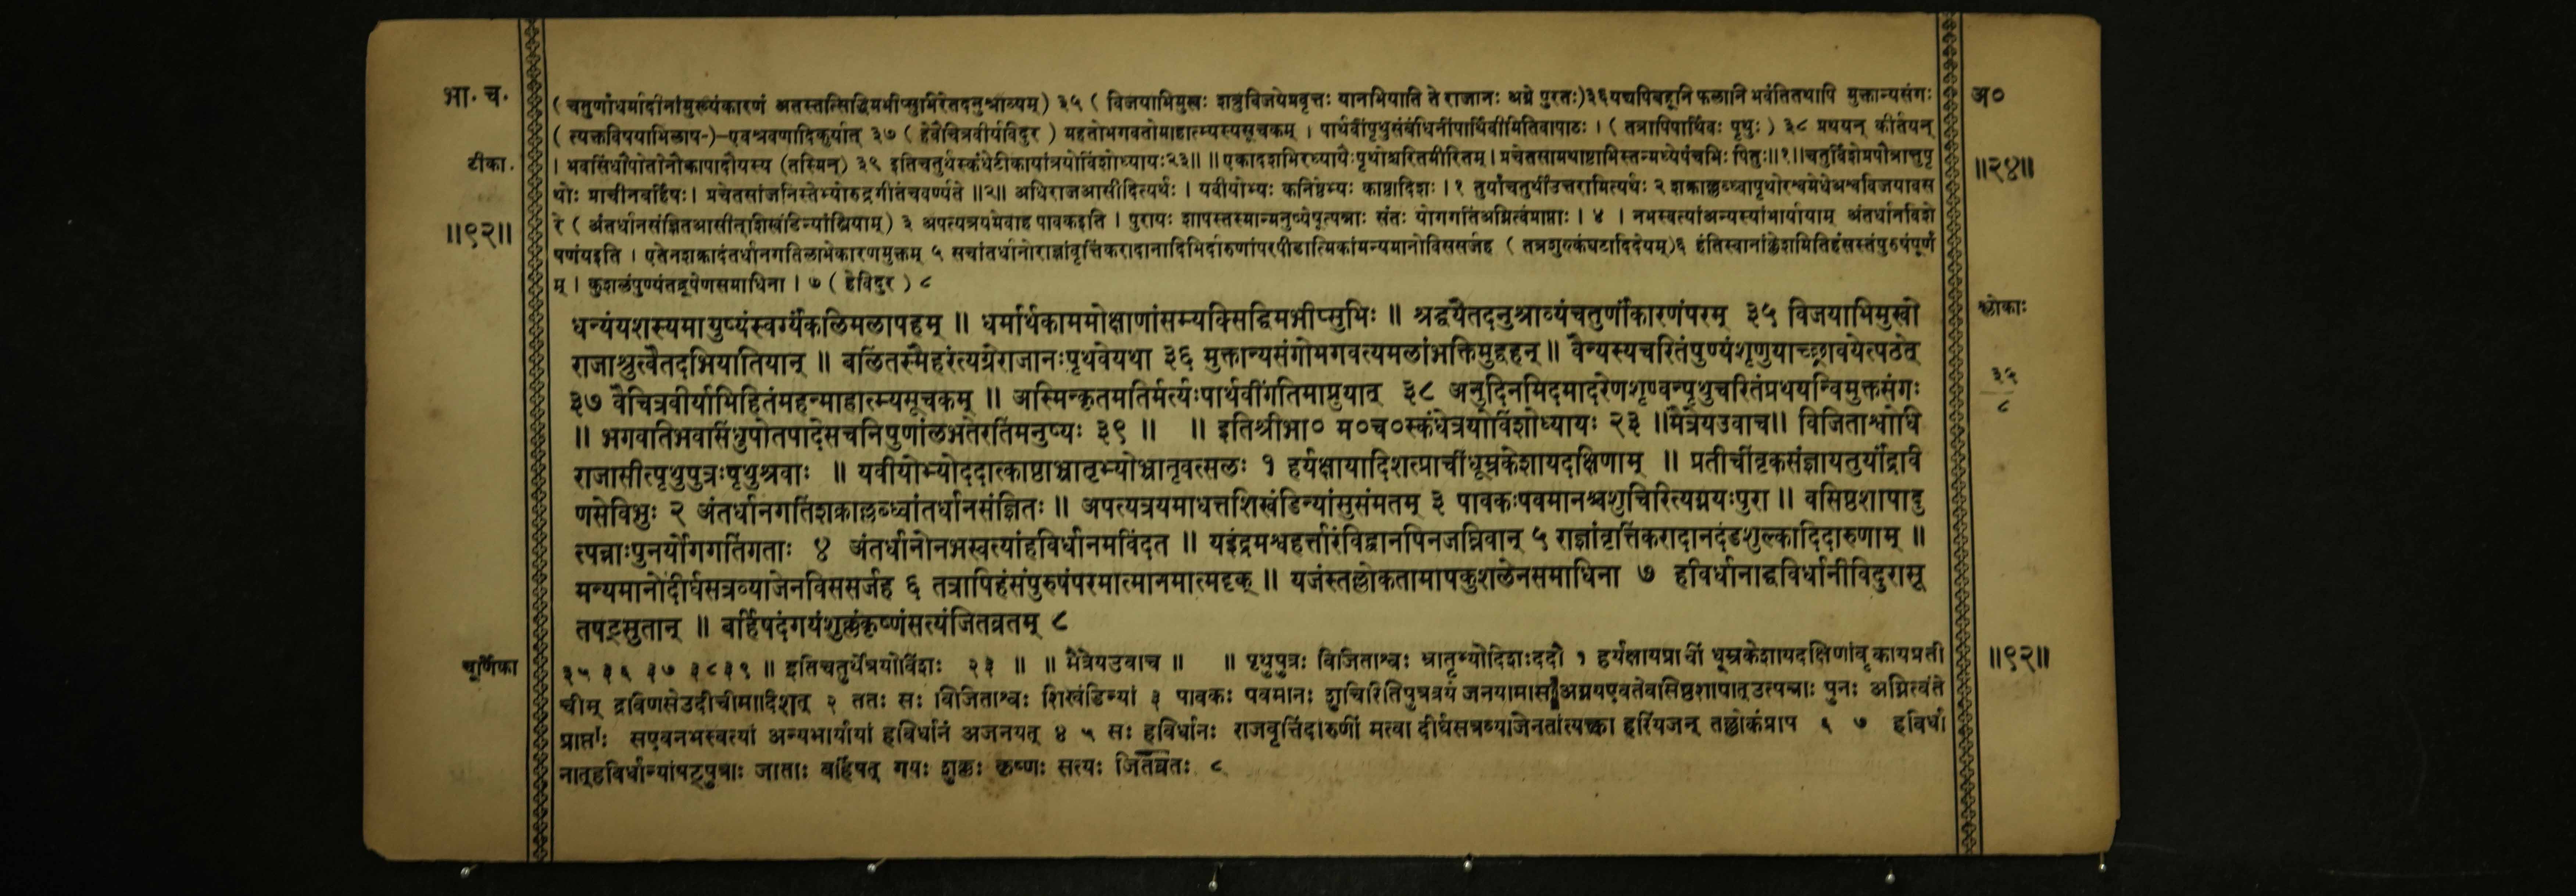 भा. च.
टीका.
॥९२॥
(चतुर्णांधर्मादीनांमुख्यंकारणं अतस्तत्सिद्धिमभीप्सुभिरेतदनुश्राव्यम्) ३५ (विजयाभिमुखः शत्रुविजयेप्रवृत्तः यानभियाति ते राजानः अग्रे पुरतः)३६यद्यपिबहूनि फलानि भवंतितथापि मुक्तान्यसंगः
(त्यक्तविषयाभिलाष-)-एवश्रवणादिकुर्यात् ३७ (हेवैचित्रवीर्यविदुर) महतोभगवतोमाहात्म्यस्यसूचकम् । पार्थवींपृथुसंबंधिनींपार्थिवीमितिवापाठः । (तत्रापिपार्थिवः पृथुः) ३८ प्रथयन् कीर्तयन्
। भवसिंधौपोतोनौकापादौयस्य (तस्मिन्) ३९ इतिचतुर्थस्कंधेटीकायांत्रयोविंशोध्यायः२३॥ ॥एकादशभिरध्यायैःपृथोश्चरितमीरितम्।प्रचेतसामथाष्टाभिस्तन्मध्येपंचभिः पितुः॥१॥चतुर्विंशेप्रपौत्रात्तुपृ
थोः प्राचीनबर्हिषः। प्रचेतसांजनिस्तेभ्योरुद्रगीतंचवर्ण्यते ॥२॥ अधिराजआसीदित्यर्थः । यवीयोभ्यः कनिष्ठेभ्यः काष्ठादिशः।१ तुर्यांचतुर्थींउत्तरामित्यर्थः २ शक्राल्लब्ध्वापृथोरश्वमेधेअश्वविजयावस
रे (अंतर्धानसंज्ञितआसीत्शिखंडिन्यांस्त्रियाम्) ३ अपत्यत्रयमेवाह पावकइति । पुरायः शापस्तस्मान्मनुष्येषूत्पन्नाः संतः योगगतिंअग्नित्वंप्राप्ताः । ४ । नभस्वत्यांअन्यस्यांभार्यायाम् अंतर्धानविशे
षणंयइति । एतेनशक्रादंतर्धानगतिलाभेकारणमुक्तम् ५ सचांतर्धानोराज्ञांवृत्तिंकरादानादिभिर्दारुणांपरपीडात्मिकांमन्यमानोविससर्जह (तत्रशुल्कंघटादिदेयम्)६ हंतिस्वानांक्लेशमितिहंसस्तंपुरुषंपूर्ण
म् । कुशलंपुण्यंतद्रूपेणसमाधिना । ७ (हेविदुर) ८
धन्यंयशस्यमायुष्यंस्वर्ग्यंकलिमलापहम् ॥ धर्मार्थकाममोक्षाणांसम्यक्सिद्धिमभीप्सुभिः ॥ श्रद्धयैतदनुश्राव्यंचतुर्णांकारणंपरम् ३५ विजयाभिमुखो
राजाश्रुत्वैतदभियातियान् ॥ बलिंतस्मैहरंत्यग्रेराजानःपृथवेयथा ३६ मुक्तान्यसंगोभगवत्यमलांभक्तिमुद्वहन् ॥ वैन्यस्यचरितंपुण्यंशृणुयाच्छ्रावयेत्पठेत्
३७ वैचित्रवीर्याभिहितंमहन्माहात्म्यसूचकम् ॥ अस्मिन्कृतमतिर्मर्त्यःपार्थवींगतिमाप्नुयात् ३८ अनुदिनमिदमादरेणशृण्वन्पृथुचरितंप्रथयन्विमुक्तसंगः
॥ भगवतिभवसिंधुपोतपादेसचनिपुणांलभतेरतिंमनुष्यः ३९ ॥ ॥ इतिश्रीभा० म०च०स्कंधेत्रयोविंशोध्यायः २३ ॥मैत्रेयउवाच॥ विजिताश्वोधि
राजासीत्पृथुपुत्रःपृथुश्रवाः ॥ यवीयोभ्योददात्काष्ठाभ्रातृभ्योभ्रातृवत्सलः १ हर्यक्षायादिशत्प्राचींधूम्रकेशायदक्षिणाम् ॥ प्रतीचींवृकसंज्ञायतुर्यांद्रवि
णसेविभुः २ अंतर्धानगतिंशक्राल्लब्ध्वांतर्धानसंज्ञितः ॥ अपत्यत्रयमाधत्तशिखंडिन्यांसुसंमतम् ३ पावकःपवमानश्चशुचिरित्यग्नयःपुरा ॥ वसिष्ठशापादु
त्पन्नाःपुनर्योगगतिंगताः ४ अंतर्धानोनभस्वत्यांहविर्धानमविंदत ॥ यइंद्रमश्वहर्त्तारंविद्वानपिनजघ्निवान् ५ राज्ञांवृत्तिंकरादानदंडशुल्कादिदारुणाम् ॥
मन्यमानोदीर्घसत्रव्याजेनविससर्जह ६ तत्रापिहंसंपुरुषंपरमात्मानमात्मदृक् ॥ यजंस्तल्लोकतामापकुशलेनसमाधिना ७ हविर्धानाद्धविर्धानीविदुरासू
तषट्सुतान् ॥ बर्हिषदंगयंशुक्लंकृष्णंसत्यंजितव्रतम् ८
चूर्णिका
३५ ३६ ३७ ३८३९ ॥ इतिचतुर्थेत्रयोविंशः २३ ॥ ॥ मैत्रेयउवाच ॥ ॥ पृथुपुत्रः विजिताश्वः भ्रातृभ्योदिशःददौ १ हर्यक्षायप्राचीं धूम्रकेशायदक्षिणांवृकायप्रती
चीम् द्रविणसेउदीचीमादिशत् २ ततः सः विजिताश्वः शिखंडिन्यां ३ पावकः पवमानः शुचिरितिपुत्रत्रयं जनयामास।अग्नयएवतेवासिष्ठशापात्उत्पन्नाः पुनः अग्नित्वंते
प्राप्ताः सएवनभस्वत्यां अन्यभार्यायां हविर्धानं अजनयत् ४ ५ सः हविर्धानः राजवृत्तिंदारुणीं मत्वा दीर्घसत्रव्याजेनतांत्यक्त्वा हरिंयजन् तल्लोकंप्राप ६ ७ हविर्धा
नात्हविर्धान्यांषट्पुत्राः जाताः बर्हिषत् गयः शुक्लः कृष्णः सत्यः जितव्रतः ८
अ०
॥२४॥
श्लोकाः
३५
८
॥९२॥